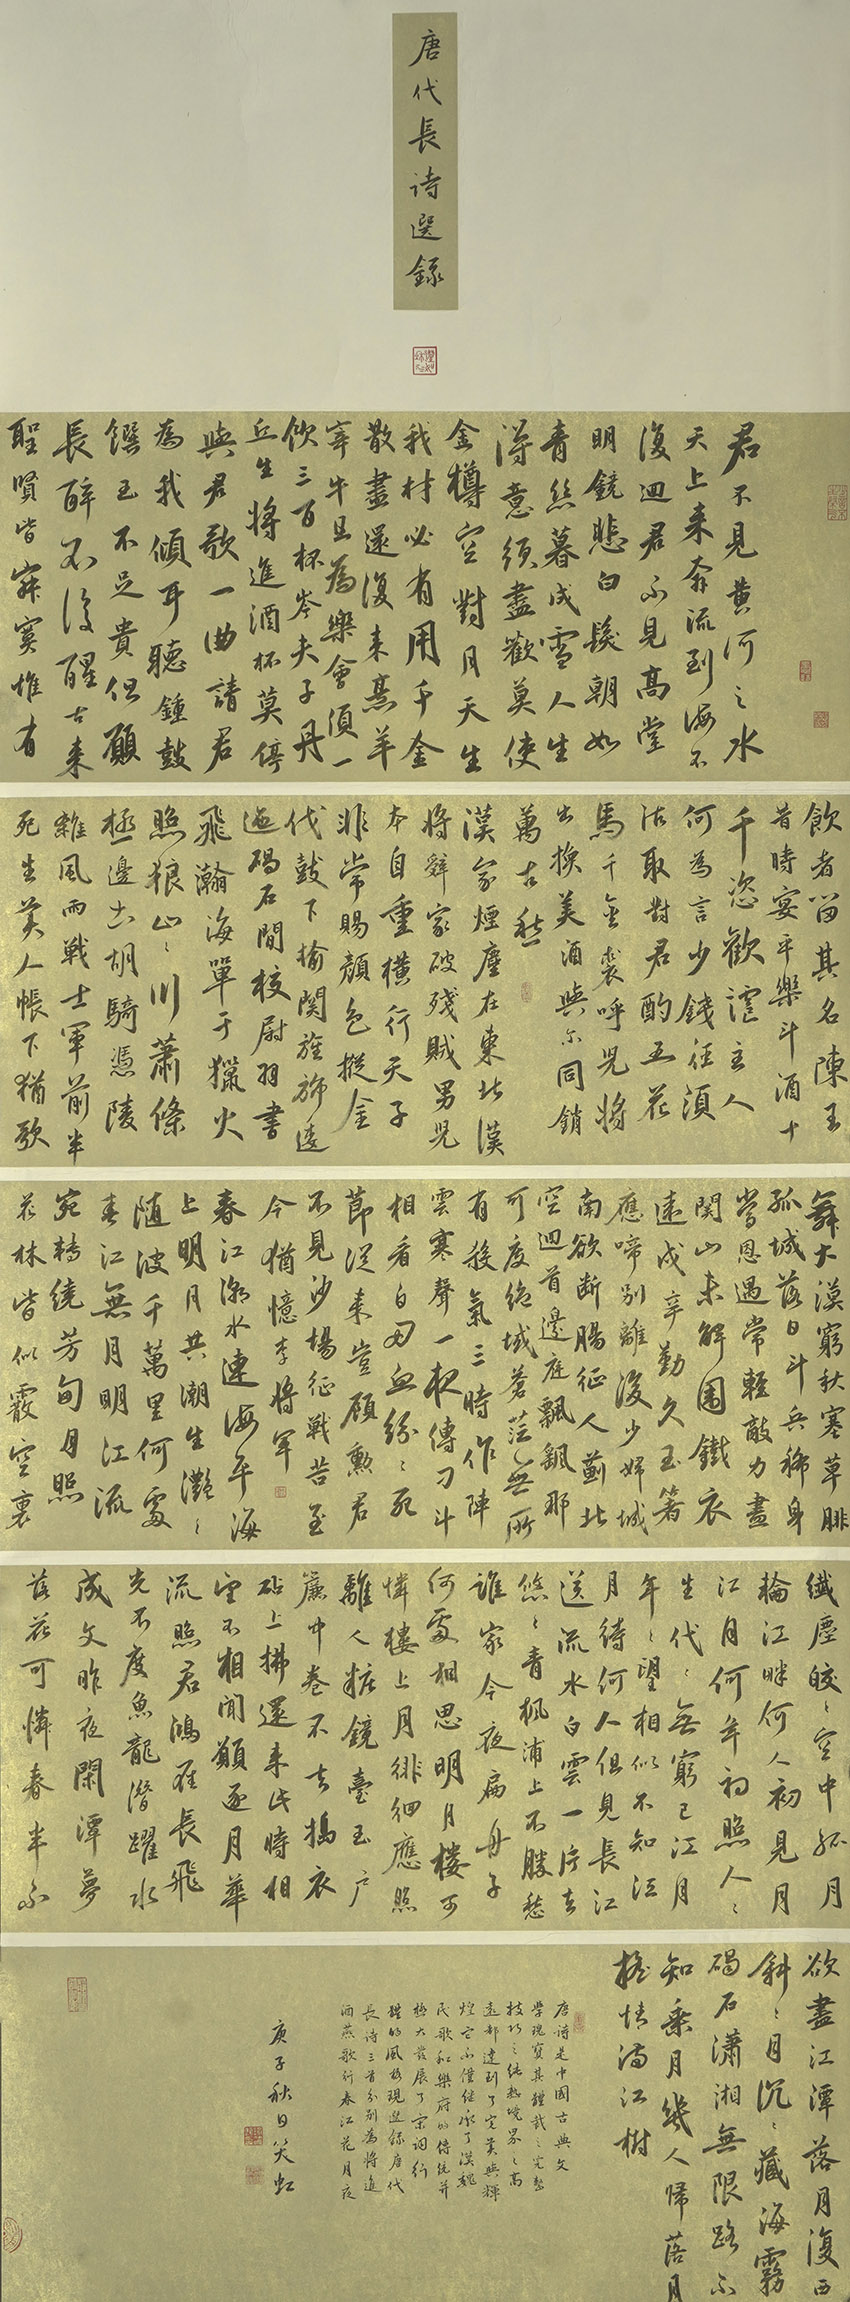 唐代長詩選錄
君不見黄河之水
天上来奔流到海不
復迴君不見高堂
明鏡悲白髮朝如
青絲暮成雪人生
得意須盡歡莫使
金樽空對月天生
我材必有用千金
散盡還復来烹羊
宰牛且為樂會須一
飲三百杯岑夫子丹
丘生將進酒杯莫停
與君歌一曲請君
為我傾耳聽鍾鼓
饌玉不足貴但願
長醉不復醒古来
聖賢皆寂寞惟有
飲者留其名陳王
昔時宴平樂斗酒十
千恣歡謔主人
何為言少錢徑須
沽取對君酌五花
馬千金裘呼兒將
出換美酒與尔同銷
萬古愁
漢家煙塵在東北漢
將辭家破殘賊男兒
本自重橫行天子
非常賜顏色摐金
伐鼓下揄関旌旆逶
迤碣石間校尉羽書
飛瀚海單于獵火
照狼山〻川蕭條
極邊土胡騎憑陵
雜風雨戦士軍前半
死生美人帳下猶歌
舞大漠窮秋塞草腓
孤城落日斗兵稀身
當恩遇常輕敵力盡
関山未解圍鐵衣
遠戍辛勤久玉箸
應啼別離後少婦城
南欲斷腸征人薊北
空迴首邊庭飄飖那
可度絕域蒼茫無所
有殺氣三時作陣
雲寒聲一夜傳刁斗
相看白刃血紛〻死
節從来豈顧勲君
不見沙場征戦苦至
今猶憶李將軍
春江潮水連海平海
上明月共潮生灩〻
随波千萬里何處
春江無月明江流
宛轉繞芳甸月照
花林皆似霰空裏
纖塵皎〻空中孤月
輪江畔何人初見月
江月何年初照人〻
生代〻無窮已江月
年〻望相似不知江
月待何人但見長江
送流水白雲一片去
悠〻青楓浦上不勝愁
誰家今夜扁舟子
何處相思明月樓可
憐樓上月徘徊應照
離人粧鏡臺玉户
簾中卷不去擣衣
砧上拂還来此時相
望不相聞願逐月華
流照君鴻雁長飛
光不度魚龍潛躍水
成文昨夜閑潭夢
落花可憐春半不
欲盡江潭落月復西
斜〻月沉〻藏海霧
碣石瀟湘無限路不
知乘月幾人歸落月
搖情滿江樹
唐詩是中國古典文
學瑰寶其體裁之完整
技巧之純熟境界之高
遠都達到了完美與輝
煌它不僅繼承了漢魏
民歌和樂府的傳統并
極大發展了宗詞行
體的風格現選錄唐代
長詩三首分別為將進
酒燕歌行春江花月夜
庚子秋日笑虹